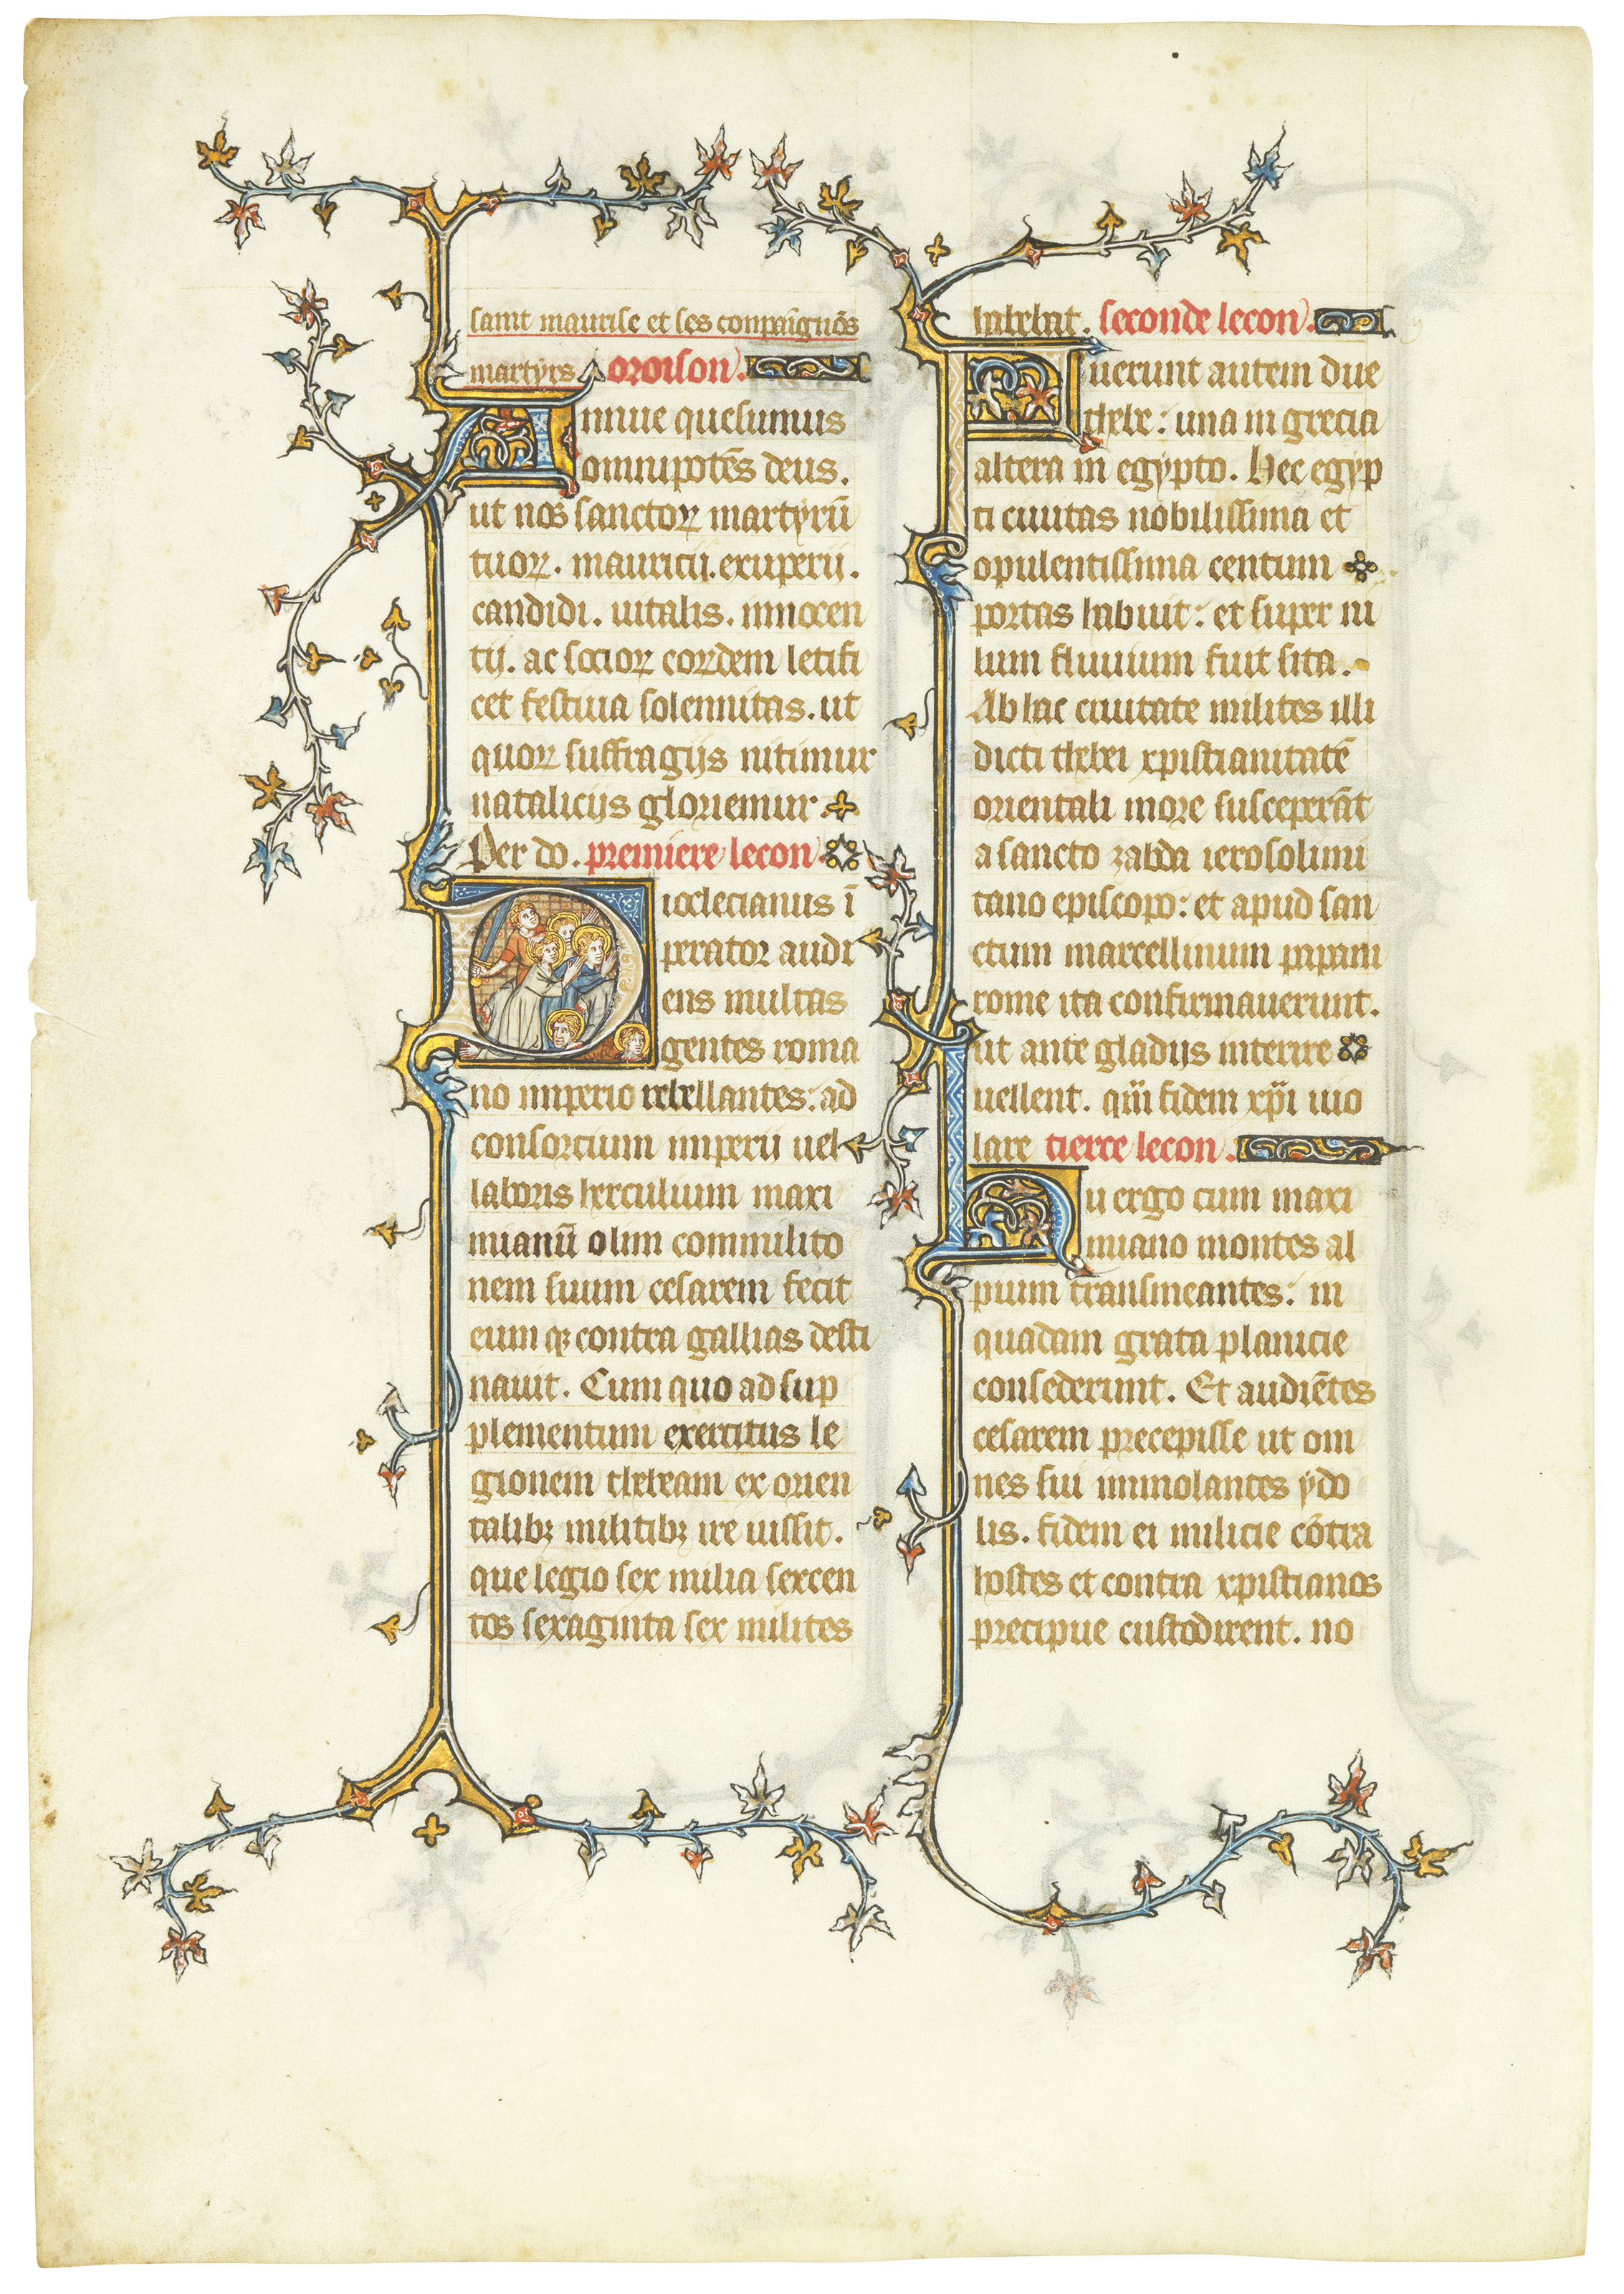 saint maurise et ses conpaignōs
martyrs oroison.
Annue quesumus
omnipotēs deus.
ut nos sanctoꝝ martyrū
tuoꝝ. mauricij. exuperij.
candidi. uitalis. innocen
tij. ac socioꝝ eoꝝdem letifi
cet festiua solennitas. ut
quoꝝ suffragijs nitimur
natalicijs gloriemur.
Per do. premiere lecon
Dioclecianus ī
perator audi
ens multas
gentes roma
no imperio rebellantes: ad
consortium imperii uel
laboris herculium maxi
mianū olim commilito
nem suum cesarem fecit
eumqꝫ contra gallias desti
nauit. Cum quo ad sup
plementum exercitus le
gionem thebeam ex orien
talibꝫ militibꝫ ire iussit.
que legio sex milia sexcen
tos sexaginta sex milites
habebat. seconde lecon.
Fuerunt autem due
thebe: una in grecia
altera in egypto. Hec egyp
ti ciuitas nobilissima et
opulentissima centum
portas habuit: et super ni
lum fluuium fuit sita.
Ab hac ciuitate milites illi
dicti thebei xpistianitatē
orientali more susceperāt
a sancto zabda ierosolimi
tano episcopo: et apud san
ctum marcellinum papam
rome ita confirmauerunt.
ut ante gladijs interire
uellent. qm̄ fidem xp̄i uio
lare tierce lecon.
Qu ergo cum maxi
miano montes al
pium transmeantes: in
quadam grata planicie
consederunt. Et audiētes
cesarem precepisse ut om
nes sui immolantes ydo
lis. fidem ei milicie cōtra
hostes et contra xpistianos
precipue custodirent. no